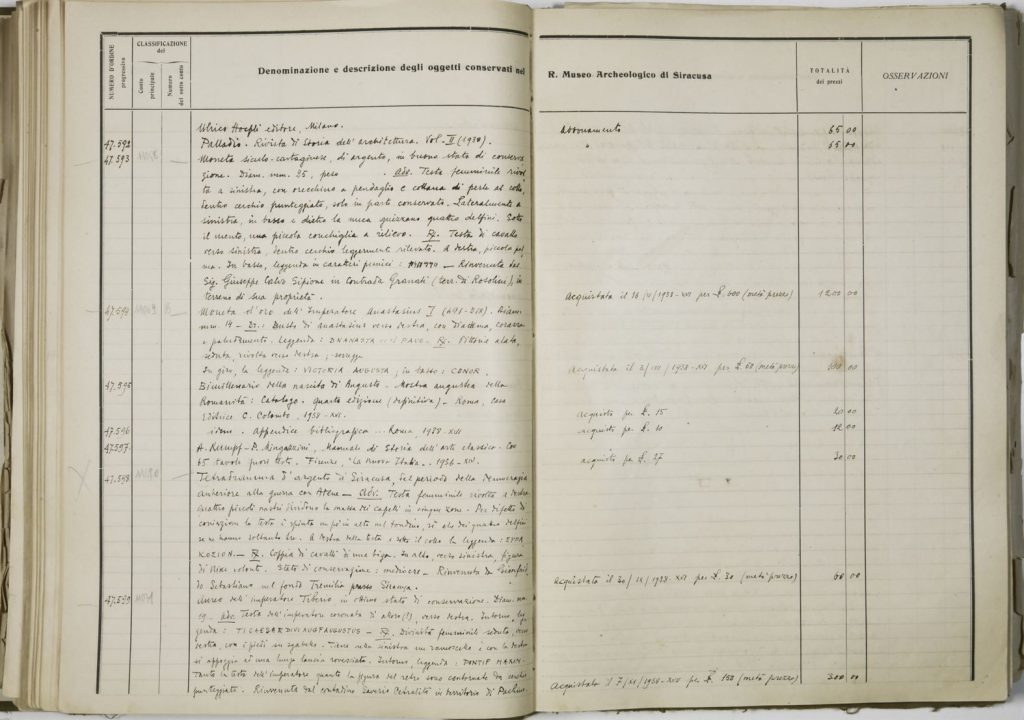 NUMERO D'ORDINE progressivo
CLASSIFICAZIONE del
Conto principale
Numero del sotto conto
Denominazione e descrizione degli oggetti conservati nel R. Museo Archeologico di Siracusa
TOTALITÀ dei prezzi
OSSERVAZIONI
Ulrico Hoepli editore, Milano. Abbonamento 65 00
47.592 Palladio. Rivista di Storia dell'architettura. Vol. II (1938). " 65 00
47.593 Moneta siculo-cartaginese, di argento, in buono stato di conserva
zione. Diam. mm. 25, peso . Adv. Testa femminile rivol
ta a sinistra, con orecchino a pendaglio e collana di perle al collo,
dentro cerchio punteggiato, solo in parte conservato. Lateralmente a
sinistra, in basso e dietro la nuca guizzano quattro delfini. Sotto
il mento, una piccola conchiglia a rilievo. Testa di cavallo
verso sinistra, dentro cerchio leggermente rilevato. A destra, piccola pal
ma. In basso, leggenda in caratteri punici: — Rinvenuta dal
Sig. Giuseppe Sipione in Contrada Granati (terr. di Rosolini), in
terreno di sua proprietà. Acquistata il 16/ /1938-XVI per £. 600 (metà prezzo) 1200 00
47.594 Moneta d'oro dell'Imperatore Anastasius I (491-518). Diam.
mm. 14 — Dr.: Busto di Anastasius verso destra, con diadema, corazza
e paludamento. Leggenda: Vittoria alata,
seduta, rivolta verso destra;
In giro, la leggenda: VICTORIA AUGUSTA; in basso: CONOR. Acquistata il /1938-XVI per £. (metà prezzo) 00
47.595 Bimillenario della nascita di Augusto - Mostra augustea della
Romanità: Catalogo. Quarta edizione (definitiva) - Roma, casa
editrice C. Colombo, 1938-XVI. acquisto per £. 15 20 00
47.596 idem. Appendice bibliografica .. Roma, 1938-XVI acquisto per £. 10 12 00
47.597 A. Rumpf - P. Mingazzini, Manuale di Storia dell'arte classica - Con
65 tavole fuori testo. Firenze, "La Nuova Italia„. 1936-XIV. acquisto per £. 27 30 00
47.598 Tetradramma d'argento di Siracusa, del periodo della democrazia
anteriore alla guerra con Atene — Adv. Testa femminile rivolta a destra
quattro piccoli nastri dividono la massa dei capelli in cinque zone. Per difetto di
coniazione la testa è spinta un po' in alto nel tondino, sì che dei quattro delfini
se ne hanno soltanto tre. A destra della testa e sotto il collo la leggenda: ΣΥΡΑ
ΚΟΣΙΟΝ — Coppia di cavalli di una biga. In alto, verso sinistra, figura
di Nike volante. Stato di conservazione: mediocre — Rinvenuta da
do Sebastiano nel fondo Tremilia presso Siracusa. Acquistata il 30/IX/1938-XVI per £. 30 (metà prezzo) 60 00
47.599 Aureo dell'imperatore Tiberio in ottimo stato di conservazione. Diam. mm.
19. Adv. Testa dell'imperatore coronata di alloro(?), verso destra. Intorno, leg
genda: TI CAESAR DIVI AUG F AUGUSTUS — Divinità femminile seduta, verso
destra, con i piedi su sgabello. Tiene nella sinistra un ramoscello e con la destra
si appoggia ad una lunga lancia rovesciata. Intorno, leggenda: PONTIF MAXIM.
Tanto la testa dell'imperatore quanto la figura del retro sono contornate da cerchio
punteggiato. Rinvenuta dal contadino Saverio Petralito in territorio di Pachino. Acquistata il 7/XI/1938-XVII per £. 150 (metà prezzo) 300 00